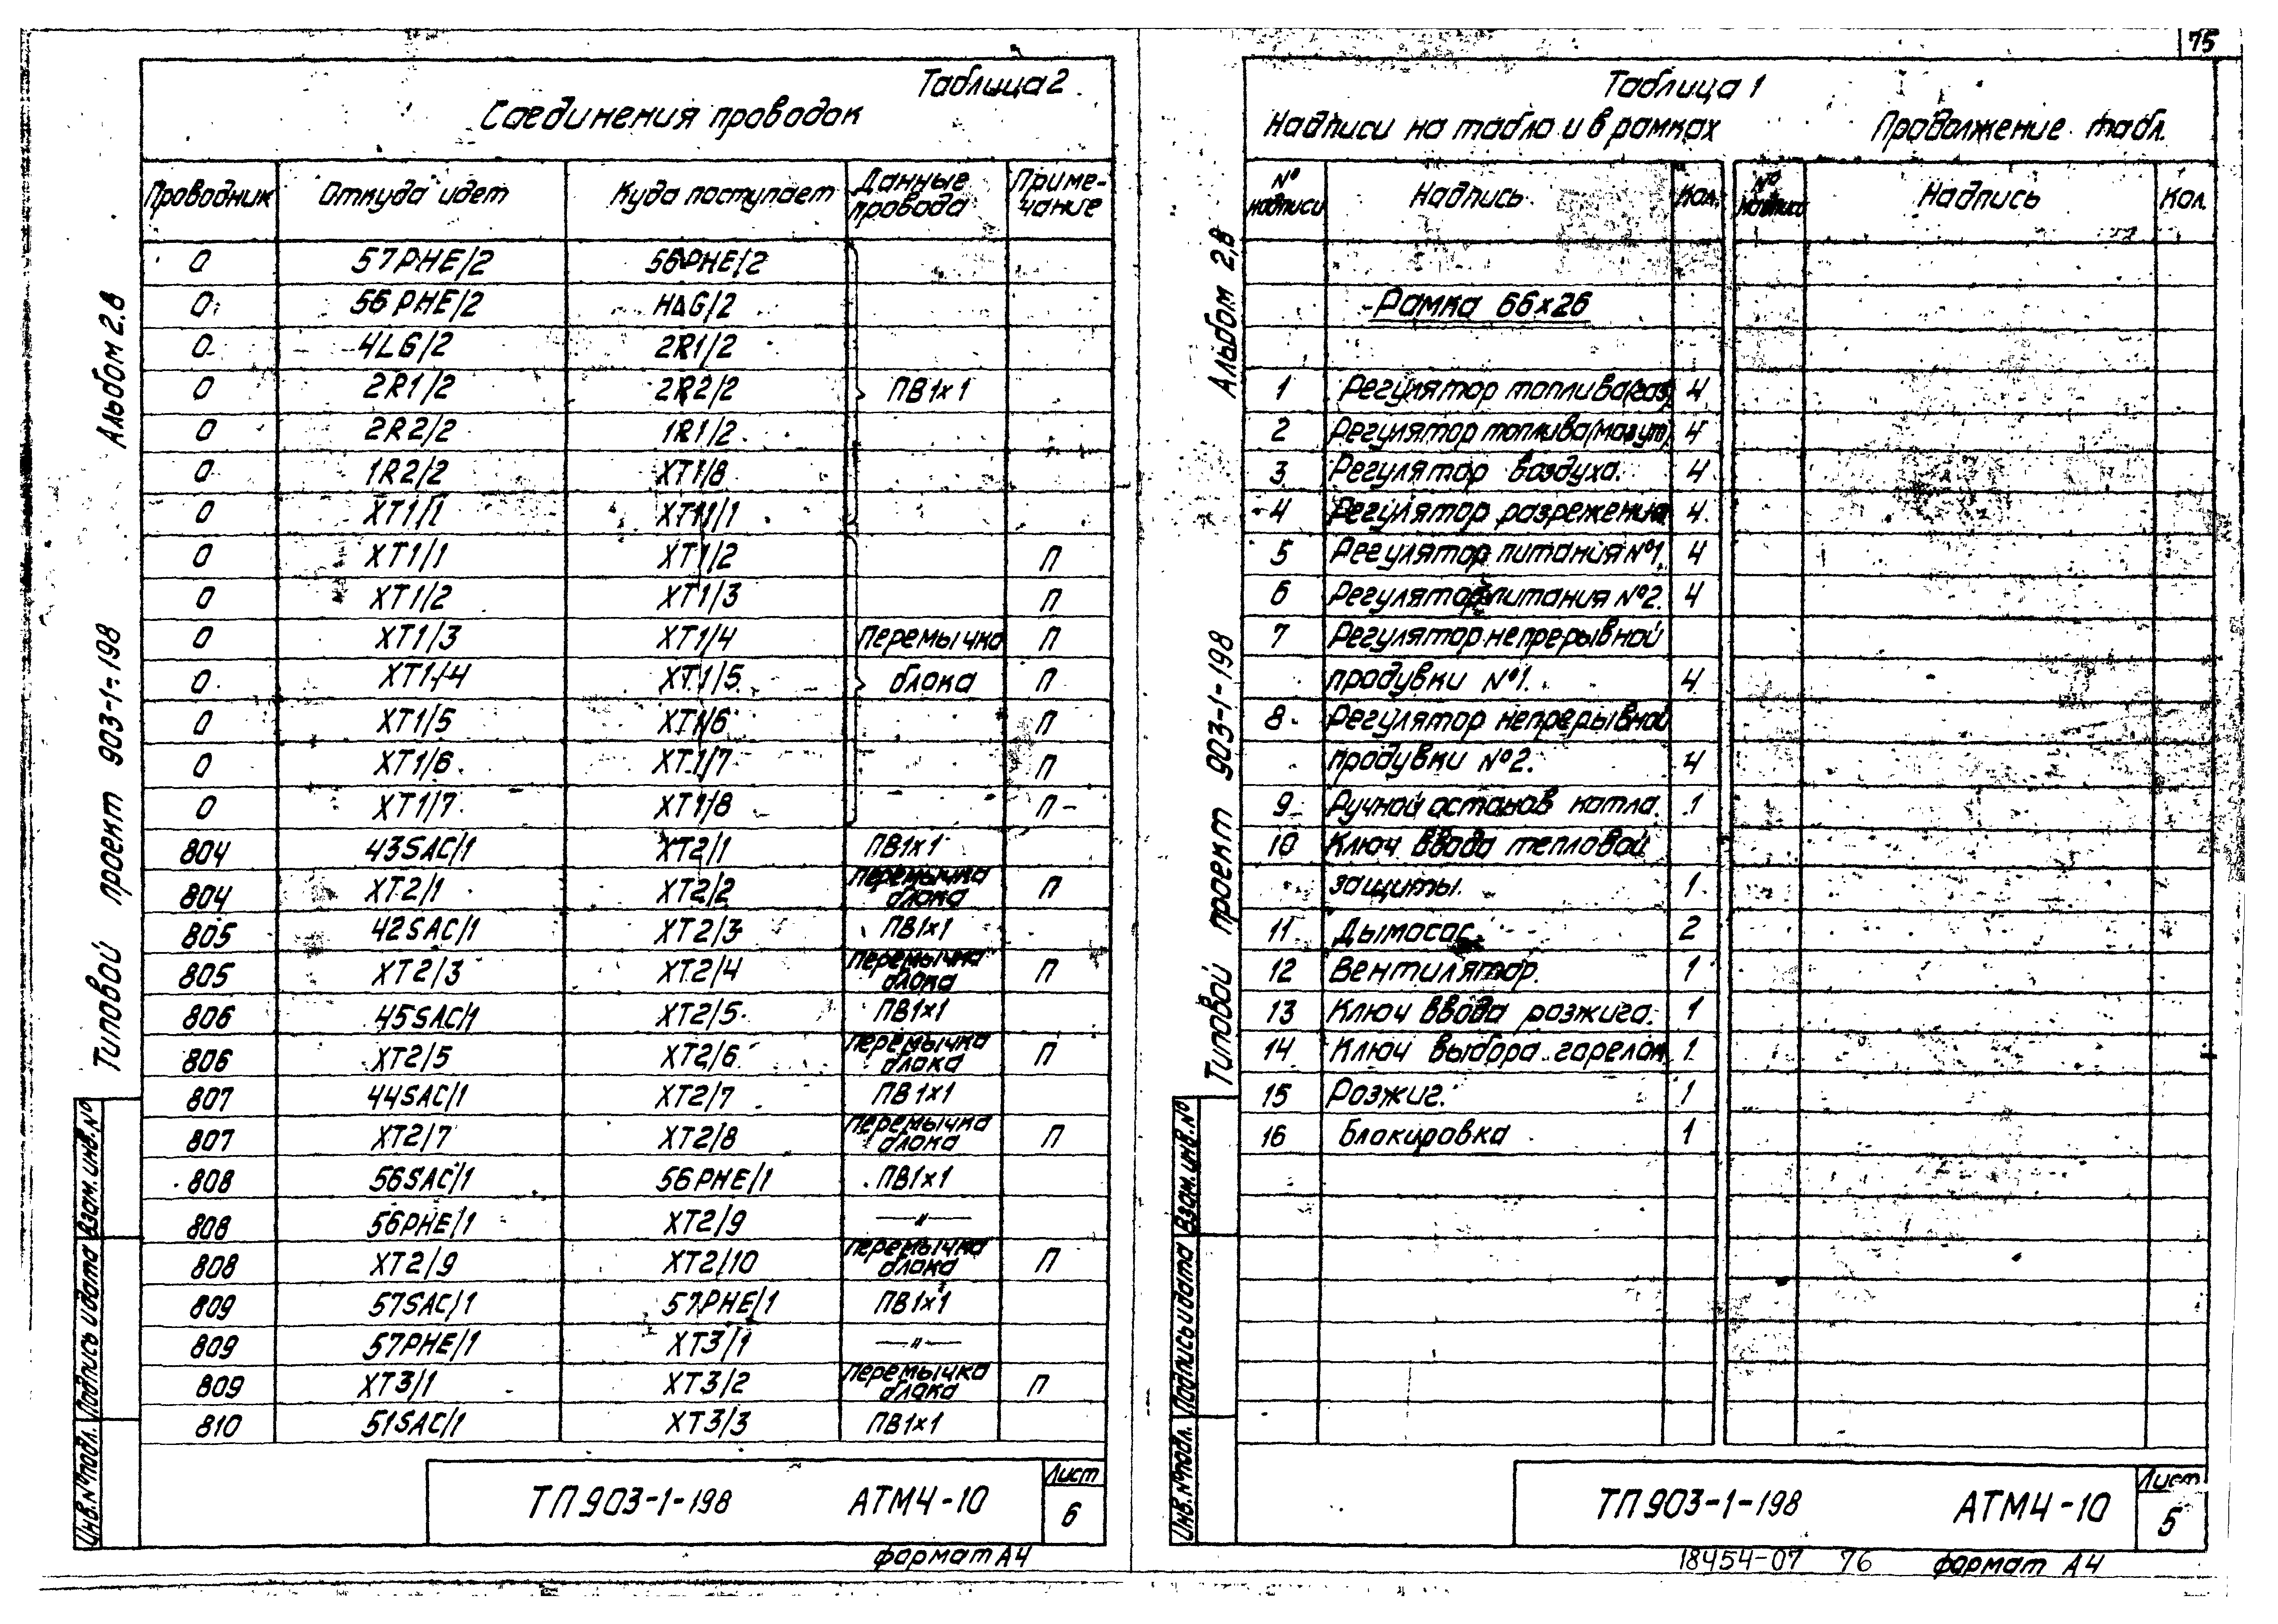 75
Таблица 2
Соединения проводок
Проводник Откуда идет Куда поступает Данные провода Примечание
0 57PHE/2 56PHE/2
0 56PHE/2 HAG/2
0 4LG/2 2R1/2
0 2R1/2 2R2/2 ПВ1х1
0 2R2/2 1R1/2
0 1R2/2 XT1/8
0 XT1/1 XT11/1
0 XT1/1 XT1/2 П
0 XT1/2 XT1/3 П
0 XT1/3 XT1/4 Перемычка П
0 XT1/4 XT1/5 блока П
0 XT1/5 XT1/6 П
0 XT1/6 XT1/7 П
0 XT1/7 XT1/8 П
804 43SAC/1 XT2/1 ПВ1х1
804 XT2/1 XT2/2 перемычка блока П
805 42SAC/1 XT2/3 ПВ1х1
805 XT2/3 XT2/4 перемычка блока П
806 45SAC/1 XT2/5 ПВ1х1
806 XT2/5 XT2/6 перемычка блока П
807 44SAC/1 XT2/7 ПВ1х1
807 XT2/7 XT2/8 перемычка блока П
808 56SAC/1 56PHE/1 ПВ1х1
808 56PHE/1 XT2/9 —"—
808 XT2/9 XT2/10 перемычка блока П
809 57SAC/1 57PHE/1 ПВ1х1
809 57PHE/1 XT3/1 —"—
809 XT3/1 XT3/2 перемычка блока П
810 51SAC/1 XT3/3 ПВ1х1
Типовой проект 903-1-198 Альбом 2.8
Инв.№подл. Подпись и дата Взам.инв.№
ТП903-1-198 АТМ4-10 Лист 6
формат А4
Таблица 1
Надписи на табло и в рамках Продолжение табл.
№ надписи Надпись Кол. № надписи Надпись Кол.
Рамка 66х26
1 Регулятор топлива(газ) 4
2 Регулятор топлива(мазут) 4
3 Регулятор воздуха. 4
4 Регулятор разрежения 4
5 Регулятор питания №1. 4
6 Регулятор питания №2. 4
7 Регулятор непрерывной
продувки №1. 4
8 Регулятор непрерывной
продувки №2. 4
9 Ручной останов котла. 1
10 Ключ ввода тепловой
защиты. 1
11 Дымосос. 2
12 Вентилятор. 1
13 Ключ ввода розжига. 1
14 Ключ выбора горелок 1
15 Розжиг. 1
16 Блокировка 1
Типовой проект 903-1-198 Альбом 2.8
Инв.№подл. Подпись и дата Взам.инв.№
ТП903-1-198 АТМ4-10 Лист 5
18454-07 76 формат А4